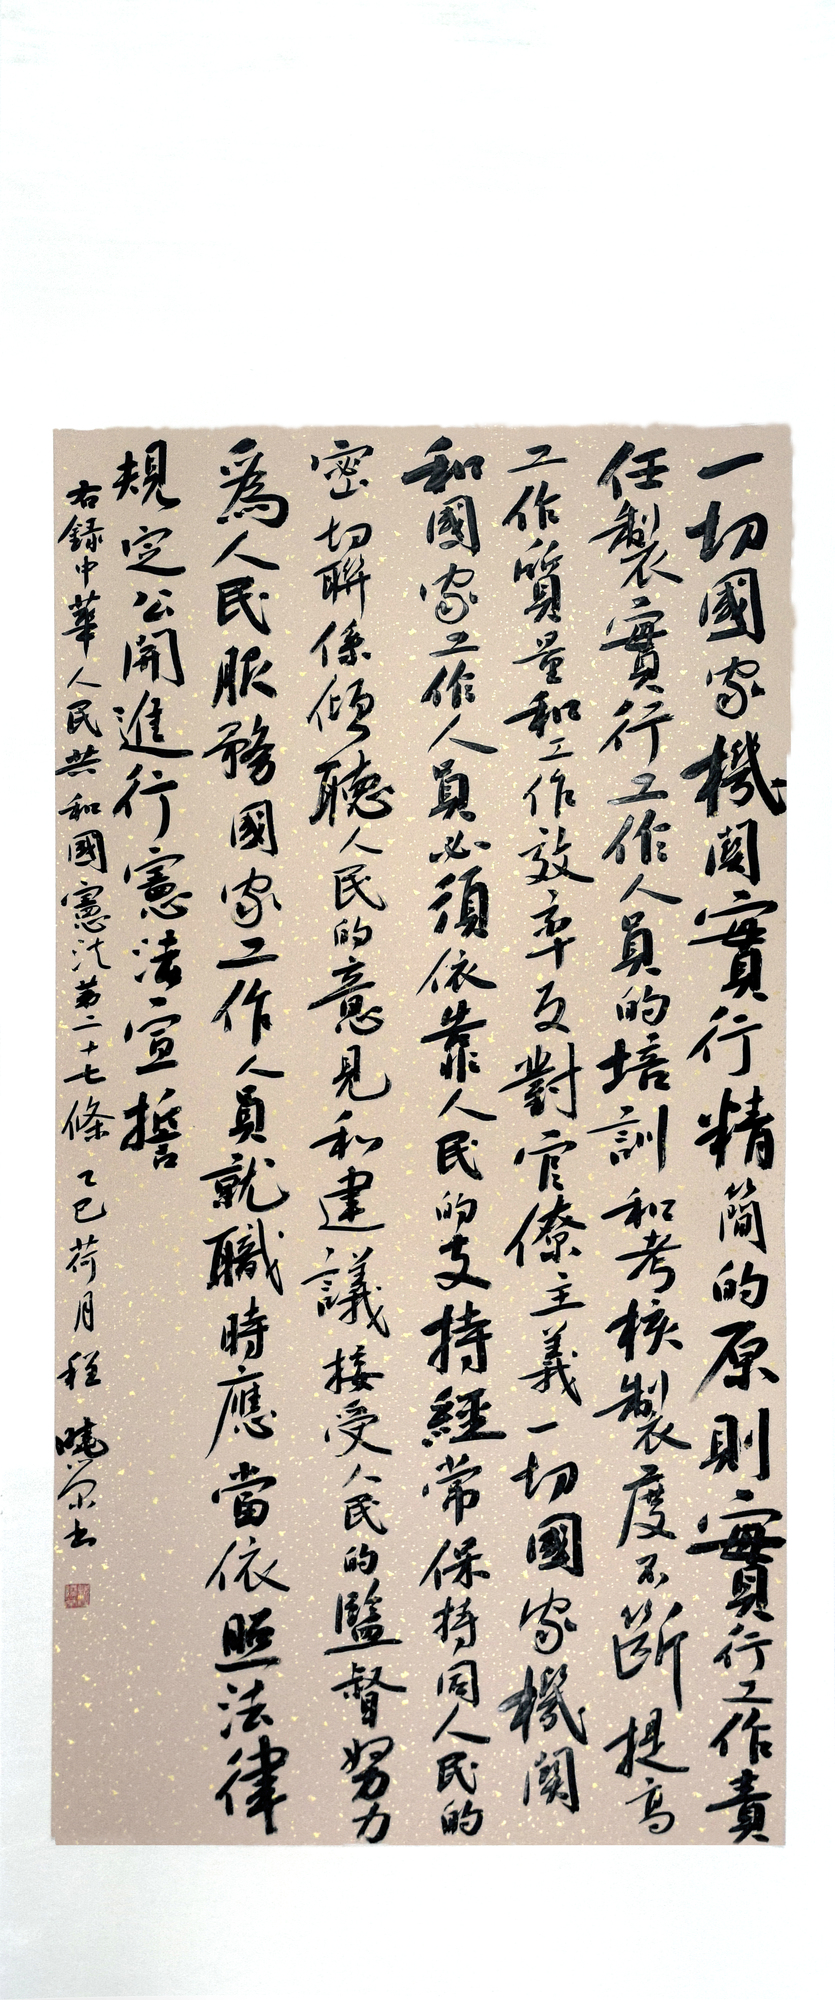 一切國家機關實行精簡的原則實行工作責
任製實行工作人員的培訓和考核製度不斷提高
工作質量和工作效率反對官僚主義一切國家機關
和國家工作人員必須依靠人民的支持經常保持同人民的
密切聯係傾聽人民的意見和建議接受人民的監督努力
爲人民服務國家工作人員就職時應當依照法律
規定公開進行憲法宣誓
右録中華人民共和國憲法第二十七條 乙巳荷月 程曉